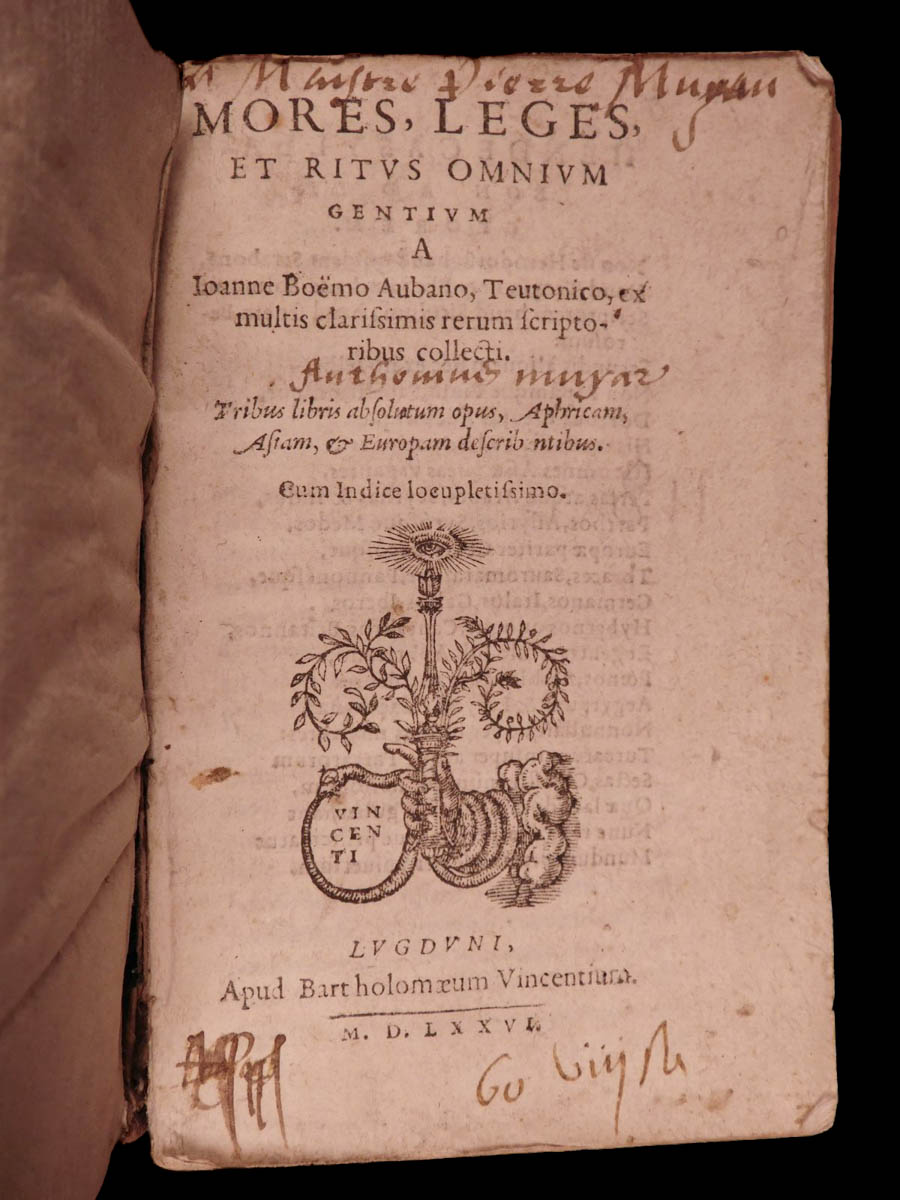 Maistre Pierre Mugau
MORES, LEGES,
ET RITVS OMNIVM
GENTIVM
A
Ioanne Boëmo Aubano, Teutonico, ex
multis clariſsimis rerum ſcripto-
ribus collecti.
Anthonius mugar
Tribus libris abſolutum opus, Aphricam,
Aſiam, & Europam deſcrib ntibus.
Cum Indice locupletiſsimo.
VIN
CEN
TI
LVGDVNI,
Apud Bartholomæum Vincentium.
M. D. LXXVI.
60